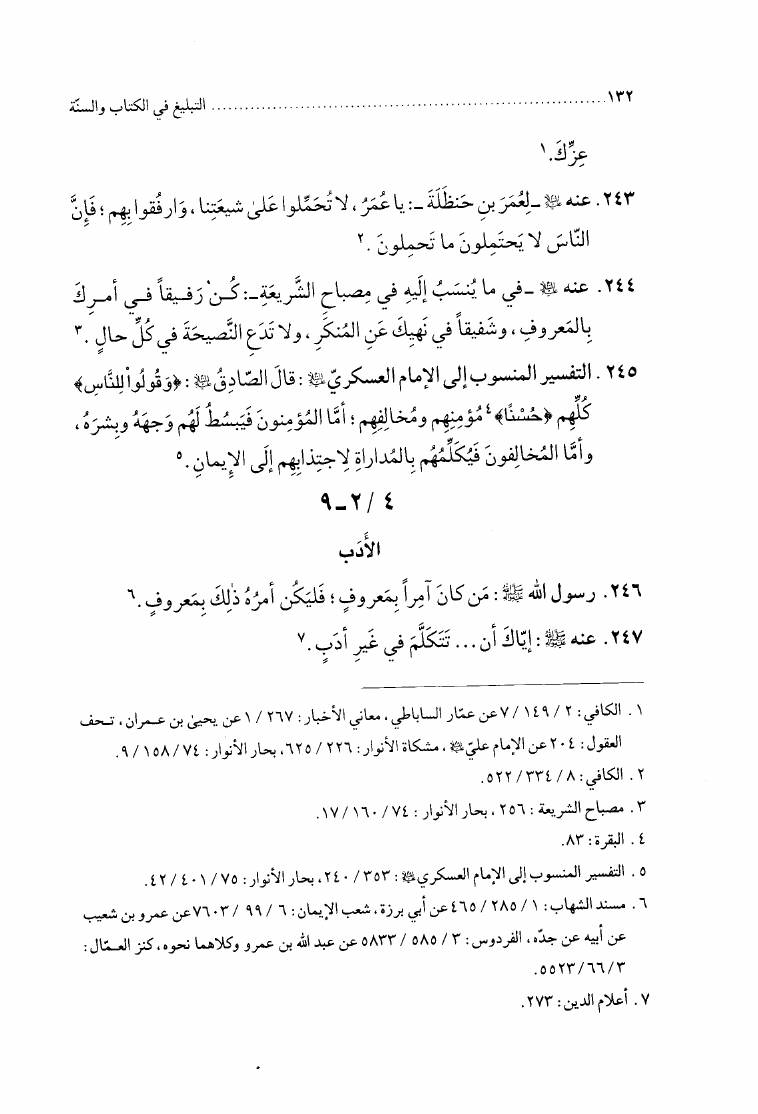 ١٣٢ ........................................................................ التبليغ في الكتاب والسنّة
عِزِّكَ.١
٢٤٣. عنه ﷺ ـ لِعُمَرَ بنِ حَنظَلَةَ ـ: يا عُمَرُ، لا تُحَمِّلوا عَلىٰ شيعَتِنا، وَارفُقوا بِهِم؛ فَإِنَّ
النّاسَ لا يَحتَمِلونَ ما تَحمِلونَ.٢
٢٤٤. عنه ـ في ما يُنسَبُ إلَيهِ في مِصباحِ الشَّريعَةِ ـ: كُن رَفيقاً في أمرِكَ
بِالمَعروفِ، وشَفيقاً في نَهيِكَ عَنِ المُنكَرِ، ولا تَدَعِ النَّصيحَةَ في كُلِّ حالٍ.٣
٢٤٥. التفسير المنسوب إلى الإمام العسكريّ: قالَ الصّادِقُ: ﴿وَقُولُواْ لِلنَّاسِ﴾
كُلِّهِم ﴿حُسْنًا﴾٤ مُؤمِنِهِم ومُخالِفِهِم؛ أمَّا المُؤمِنونَ فَيَبسُطُ لَهُم وَجهَهُ وبِشرَهُ،
وأمَّا المُخالِفونَ فَيُكَلِّمُهُم بِالمُداراةِ لِاجتِذابِهِم إلَى الإِيمانِ.٥
٤ / ٢ ـ ٩
الأَدَب
٢٤٦. رسول الله ﷺ: مَن كانَ آمِراً بِمَعروفٍ؛ فَليَكُن أمرُهُ ذٰلِكَ بِمَعروفٍ.٦
٢٤٧. عنه ﷺ: إيّاكَ أن... تَتَكَلَّمَ في غَيرِ أدَبٍ.٧
١. الكافي: ٢ / ١٤٩ / ٧ عن عمّار الساباطي، معاني الأخبار: ٢٦٧ / ١ عن يحيىٰ بن عمران، تحف
العقول: ٢٠٤ عن الإمام عليّ، مشكاة الأنوار: ٢٢٦ / ٦٢٥، بحار الأنوار: ٧٤ / ١٥٨ / ٩.
٢. الكافي: ٨ / ٣٣٤ / ٥٢٢.
٣. مصباح الشريعة: ٢٥٦، بحار الأنوار: ٧٤ / ١٦٠ / ١٧.
٤. البقرة: ٨٣.
٥. التفسير المنسوب إلى الإمام العسكري: ٣٥٣ / ٢٤٠، بحار الأنوار: ٧٥ / ٤٠١ / ٤٢.
٦. مسند الشهاب: ١ / ٢٨٥ / ٤٦٥ عن أبي برزة، شعب الإيمان: ٦ / ٩٩ / ٧٦٠٣ عن عمرو بن شعيب
عن أبيه عن جدّه، الفردوس: ٣ / ٥٨٥ / ٥٨٣٣ عن عبد الله بن عمرو وكلاهما نحوه، كنز العمّال:
٣ / ٦٦ / ٥٥٢٣.
٧. أعلام الدين: ٢٧٣.